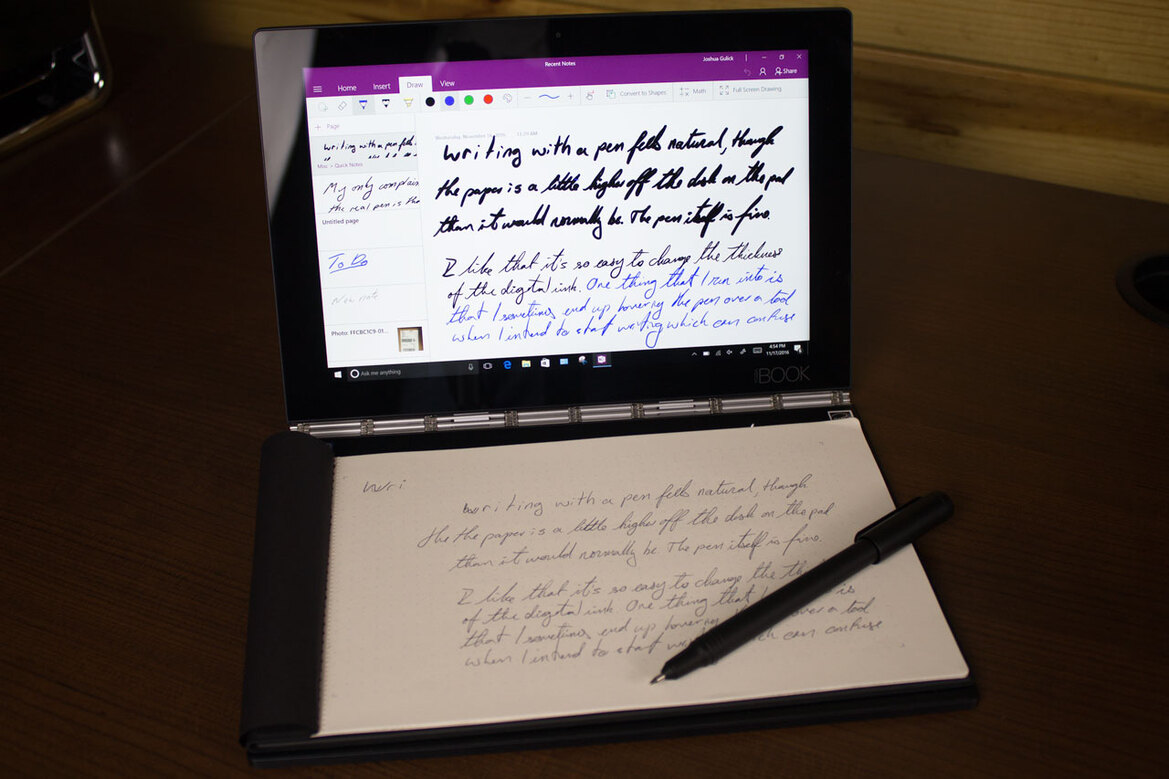 Recent Notes
Joshua Gulick
Home Insert Draw View
Share
Convert to Shapes Math Full Screen Drawing
+ Page
writing with a pen fells
Misc > Quick Notes
My only complain
the real pen is tha
Untitled page
To Do
New note
Photo: FFCBC1C9-01...
Wednesday, November 11:29 AM
writing with a pen fells natural, though
the paper is a little higher off the disk on the pad
than it would normally be. The pen itself is fine.
I like that it's so easy to change the thickness
of the digital ink. One thing that I run into is
that I sometimes end up hovering the pen over a tool
when I intend to start writing which can confuse
Ask me anything
4:54 PM
11/17/2016
YOGA BOOK
Wri
writing with a pen fells natural, though
the the paper is a little higher off the disk on the pad
than it would normally be. The pen itself is fine.
I like that it's so easy to change the th
of the digital ink. One thing that I is
that I sometimes end up hovering over a tool
when I intend to start wr which can confuse